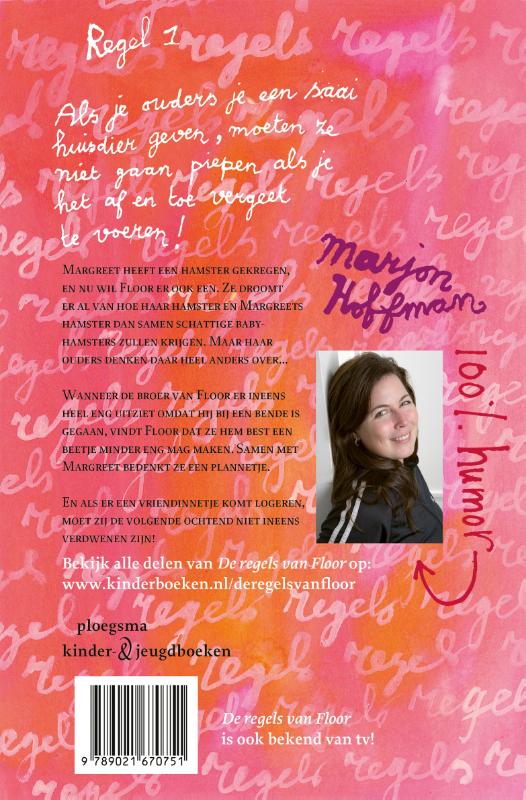 Regel 1
Als je ouders je een saai
huisdier geven, moeten ze
niet gaan piepen als je
het af en toe vergeet
te voeren!
Marjon
Hoffman
Margreet heeft een hamster gekregen,
en nu wil Floor er ook een. Ze droomt
er al van hoe haar hamster en Margreets
hamster dan samen schattige baby-
hamsters zullen krijgen. Maar haar
ouders denken daar heel anders over...
Wanneer de broer van Floor er ineens
heel eng uitziet omdat hij bij een bende is
gegaan, vindt Floor dat ze hem best een
beetje minder eng mag maken. Samen met
Margreet bedenkt ze een plannetje.
En als er een vriendinnetje komt logeren,
moet zij de volgende ochtend niet ineens
verdwenen zijn!
100% humor
Bekijk alle delen van De regels van Floor op:
www.kinderboeken.nl/deregelsvanfloor
ploegsma
kinder- & jeugdboeken
9 789021 670751
De regels van Floor
is ook bekend van tv!